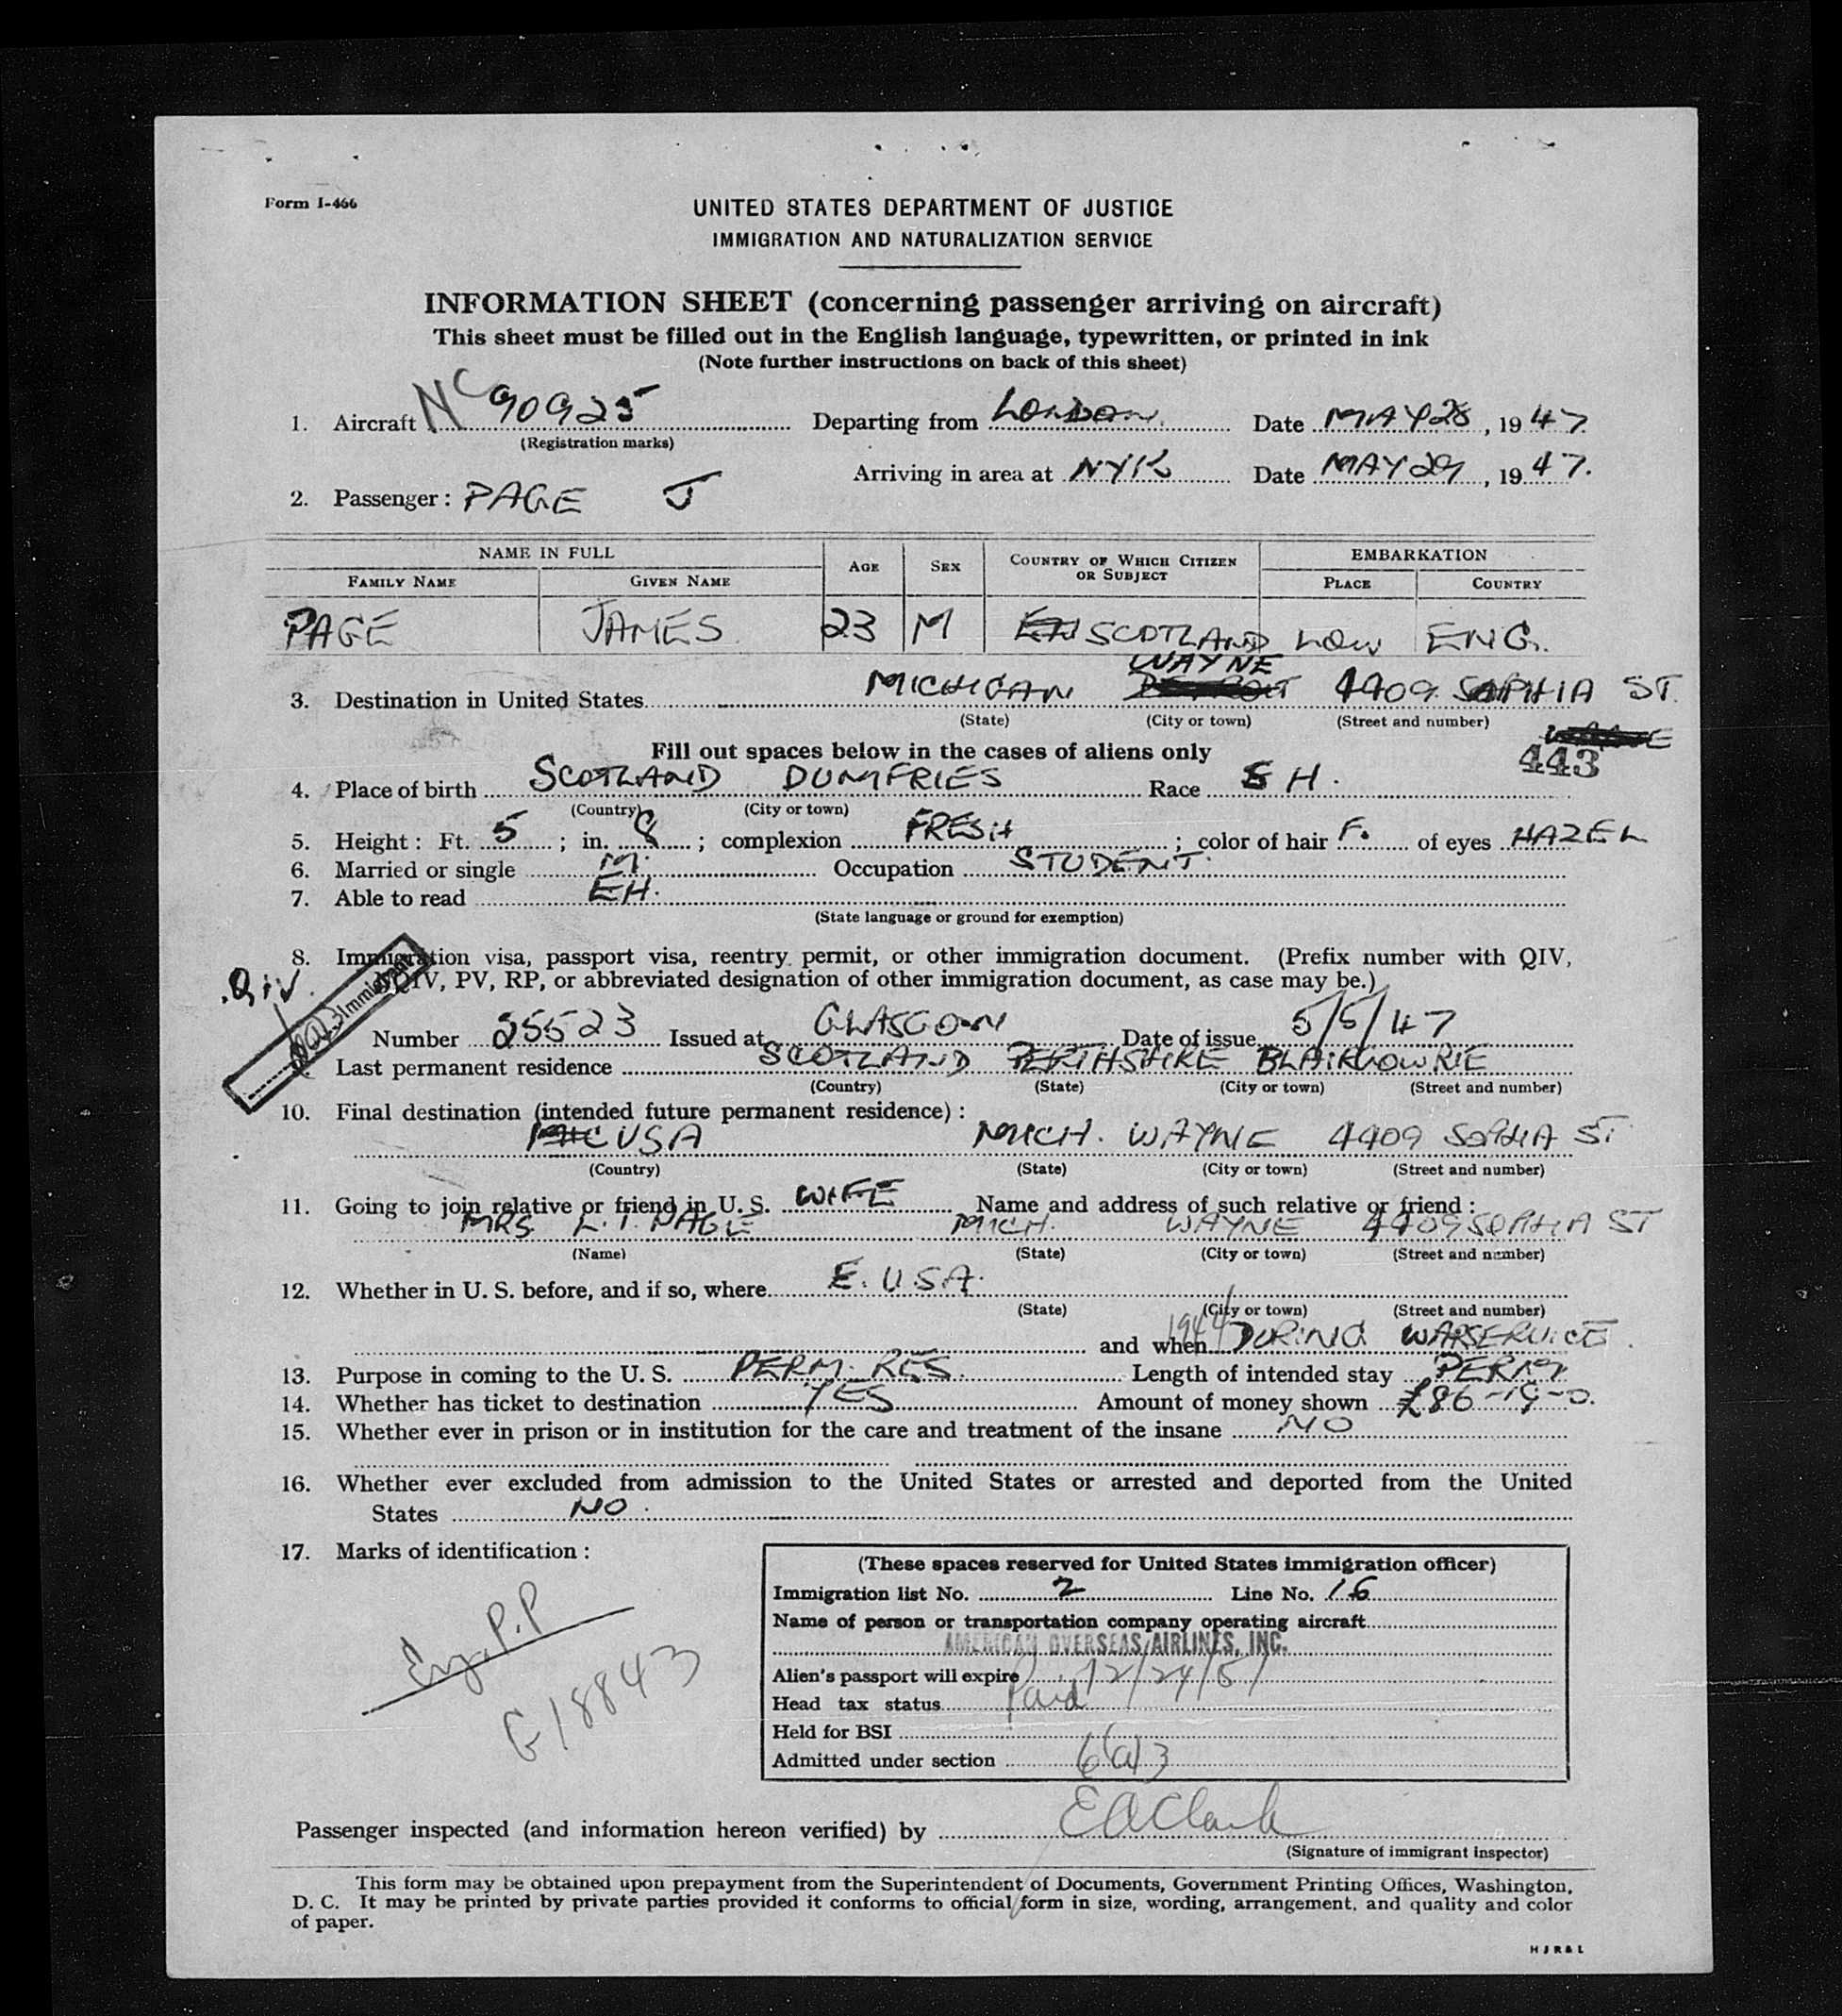 Form I-466
UNITED STATES DEPARTMENT OF JUSTICE
IMMIGRATION AND NATURALIZATION SERVICE
INFORMATION SHEET (concerning passenger arriving on aircraft)
This sheet must be filled out in the English language, typewritten, or printed in ink
(Note further instructions on back of this sheet)
1. Aircraft NC 90925 Departing from LONDON Date MAY 28, 1947
(Registration marks)
Arriving in area at NYK Date MAY 29, 1947.
2. Passenger: PAGE J
NAME IN FULL AGE SEX COUNTRY OF WHICH CITIZEN OR SUBJECT EMBARKATION
FAMILY NAME GIVEN NAME PLACE COUNTRY
PAGE JAMES 23 M SCOTLAND LON ENG.
WAYNE
3. Destination in United States MICHIGAN 4409 SOPHIA ST.
(State) (City or town) (Street and number)
Fill out spaces below in the cases of aliens only
443
4. Place of birth SCOTLAND DUMFRIES Race H.
(Country) (City or town)
5. Height: Ft. 5; in. 8; complexion FRESH; color of hair F. of eyes HAZEL
6. Married or single M. Occupation STUDENT.
7. Able to read EH.
(State language or ground for exemption)
8. Immigration visa, passport visa, reentry permit, or other immigration document. (Prefix number with QIV,
NQIV, PV, RP, or abbreviated designation of other immigration document, as case may be.)
Qiv.
Immigrant
Number 25523 Issued at GLASGOW Date of issue 5/5/47
Last permanent residence SCOTLAND PERTHSHIRE BLAIRGOWRIE
(Country) (State) (City or town) (Street and number)
10. Final destination (intended future permanent residence):
USA MICH. WAYNE 4409 SOPHIA ST
(Country) (State) (City or town) (Street and number)
11. Going to join relative or friend in U. S. WIFE Name and address of such relative or friend:
MRS L. I. PAGE MICH. WAYNE 4409 SOPHIA ST
(Name) (State) (City or town) (Street and number)
12. Whether in U. S. before, and if so, where E. U.S.A.
(State) (City or town) (Street and number)
and when 1944 DURING WAR SERVICE.
13. Purpose in coming to the U. S. PERM. RES. Length of intended stay PERM
14. Whether has ticket to destination YES Amount of money shown £86-19-0.
15. Whether ever in prison or in institution for the care and treatment of the insane NO
16. Whether ever excluded from admission to the United States or arrested and deported from the United
States NO.
17. Marks of identification:
P.P
G18843
(These spaces reserved for United States immigration officer)
Immigration list No. 2 Line No. 16
Name of person or transportation company operating aircraft
AMERICAN OVERSEAS AIRLINES, INC.
Alien's passport will expire 12/24/51
Head tax status Paid
Held for BSI
Admitted under section 6(a)3
Passenger inspected (and information hereon verified) by E A Clark
(Signature of immigrant inspector)
This form may be obtained upon prepayment from the Superintendent of Documents, Government Printing Offices, Washington,
D. C. It may be printed by private parties provided it conforms to official form in size, wording, arrangement, and quality and color
of paper.
HJR&L